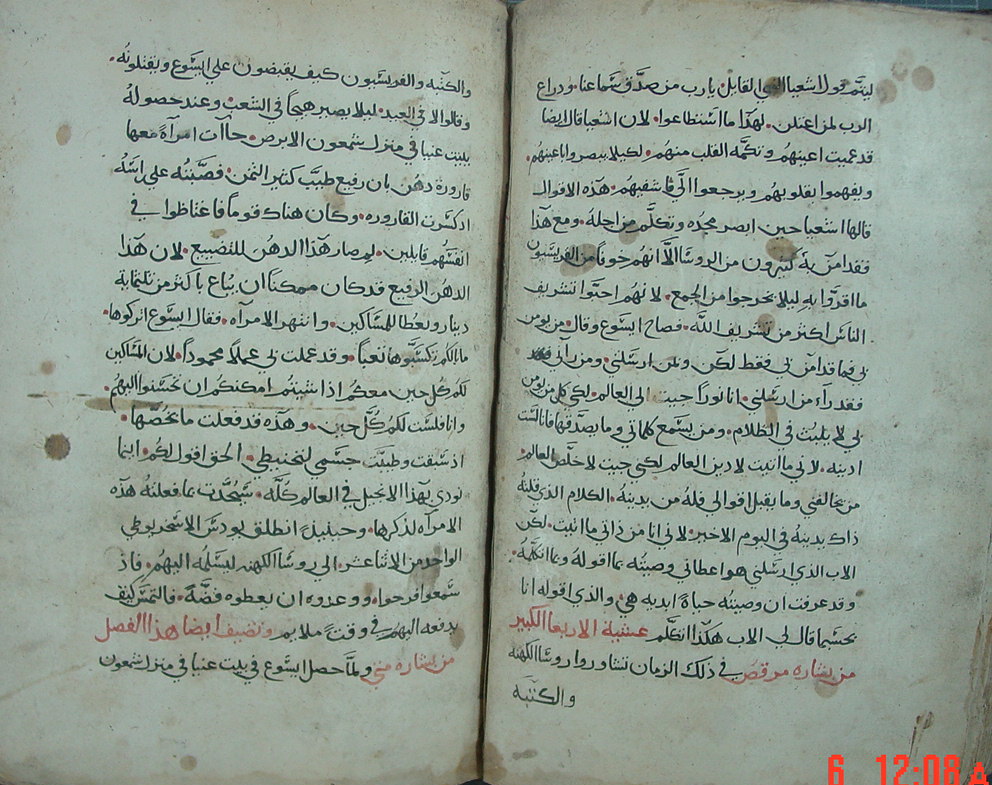 ليتم قول اشعيا النبي القايل يارب من صدق سماعنا ودراع
الرب لمن اعتلن. لهذا ما استطاعوا. لان اشعيا قال ايضا
قد عميت اعينهم وتكمه القلب منهم. لكيلا يبصروا باعينهم.
ويفهموا بقلوبهم ويرجعوا الي فاشفيهم. هذه الاقوال
قالها اشعيا حين ابصر مجده وتكلم من اجله. ومع هذا
فقد امن به كثيرون من الروسا الا انهم خوفا من الفريسيون
ما اقروا به ليلا يخرجوا من الجمع. لانهم احبوا تشريف
الناس اكثر من تشريف الله. فصاح ايسوع وقال. من يومن
بي فما قد امن بي فقط لكن وبمن ارسلني. ومن راني
فقد راء من ارسلني. انا نورا جيت الي العالم. لكي كل من يومن
بي لم يلبث في الظلام. ومن يسمع كلماتي وما يصدقها فانا لست
ادينه. لاني ما اتيت لادين العالم لكني جيت لاخلص العالم.
من يخالفني وما يقبل اقوالي فله من يدينه. الكلام الذي قلته
ذاك يدينه في اليوم الاخير. لاني انا من ذاتي ما اتيت. لكن
الاب الذي ارسلني هو اعطاني وصيته بما اقوله وبما اتكلمه.
وقد عرفت ان وصيته حياة ابديه هي. والذي اقوله انا
بحسبما قال لي الاب هكذا اتكلم عشية الاربعا الكبير
من بشاره مرقص في ذلك الزمان تشاوروا روسا الكهنه
والكتبه
والكتبه والفريسيون كيف يقبضون علي ايسوع ويقتلونه.
وقالوا لا في العيد. ليلا يصير هيجا في الشعب. وعند حصوله
ببيت عنيا في منزل شمعون الابرص. جاات امراة معها
قارورة دهن بان رفيع طيب كثير الثمن. فصبته علي راسه
اذ كسرت القاروره. وكان هناك قوما فاغتاظوا في
انفسهم قايلين. لم صار هذا الدهن للتضييع. لان هذا
الدهن الرفيع قد كان ممكنا ان يباع باكثر من ثلثماية
دينار ويعطا للمساكين. وانتهر الامراه. فقال ايسوع اتركوها.
ما بالكم تكسبوها تعبا. وقد عملت بي عملا محمودا. لان المساكين
لكم كل حين معكم اذا شيتم امكنكم ان تحسنوا اليهم.
وانا فلست لكم كل حين. وهذه قد فعلت ما يخصها.
اذ سبقت وطيبت جسمي لتحنيطي. الحق اقول لكم. اينما
نودي بهذا الانجيل في العالم كله. سيحدث بما فعلته هذه
الامراه لذكرها. وحينيذ انطلق يودس الاسخريوطي
الواحد من الاثنا عشر. الي روسا الكهنه ليسلمه اليهم. فاذ
سمعوا فرحوا. ووعدوه ان يعطوه فضة. فالتمس كيف
يدفعه اليهم في وقت ملايم ونضيف ايضا هذا الفصل
من بشاره متي ولما حصل ايسوع في بيت عنيا في منزل شمعون
6 12:08 A